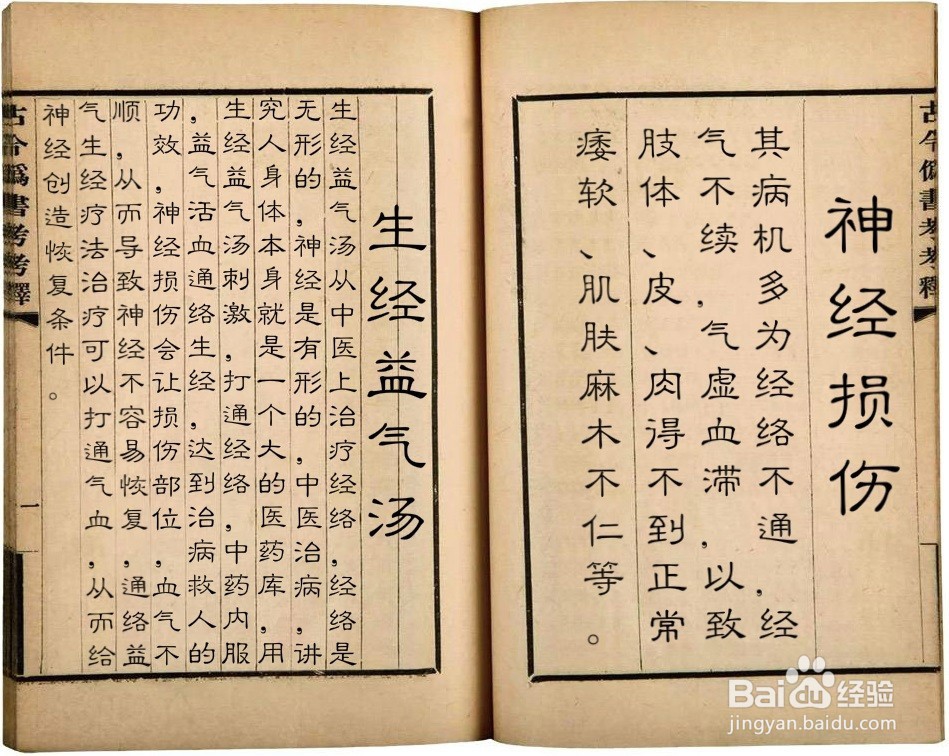 古今僞書考考釋
神经损伤
其病机多为经络不通，经
气不续，气虚血滞，以致
肢体、皮、肉得不到正常
痿软、肌肤麻木不仁等。
生经益气汤
生经益气汤从中医上治疗经络，经络是
无形的，神经是有形的，中医治病，讲
究人身体本身就是一个大的医药库，用
生经益气汤刺激，打通经络，中药内服
，益气活血通络生经，达到治病救人的
功效，神经损伤会让损伤部位，血气不
顺，从而导致神经不容易恢复，通络益
气生经疗法治疗可以打通气血，从而给
神经创造恢复条件。
古今僞書考考釋
一
Baidu经验
jingyan.baidu.com